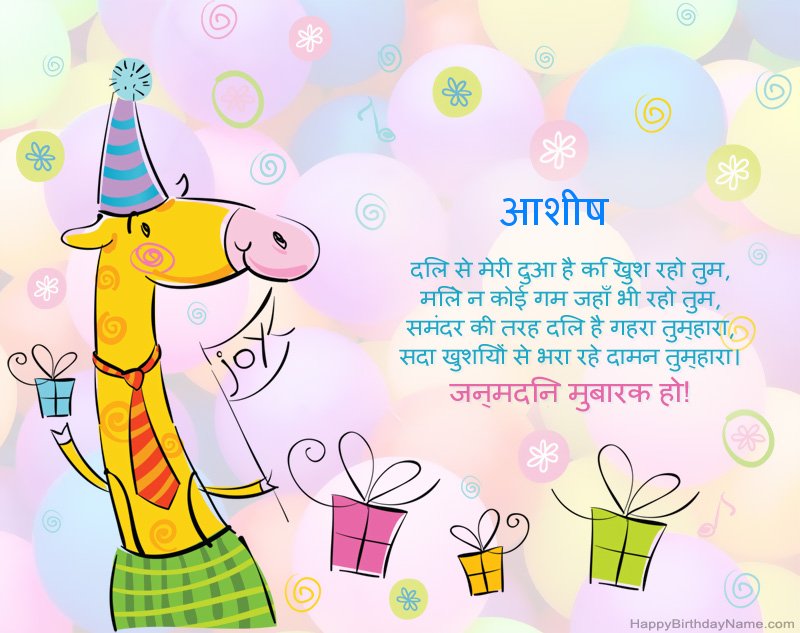 आशीष
दलि से मेरी दुआ है कि खुश रहो तुम,
मलिे न कोई गम जहाँ भी रहो तुम,
समंदर की तरह दलि है गहरा तुम्हारा,
सदा खुशयिों से भरा रहे दामन तुम्हारा।
जन्मदनि मुबारक हो!
joy
HappyBirthdayName.com